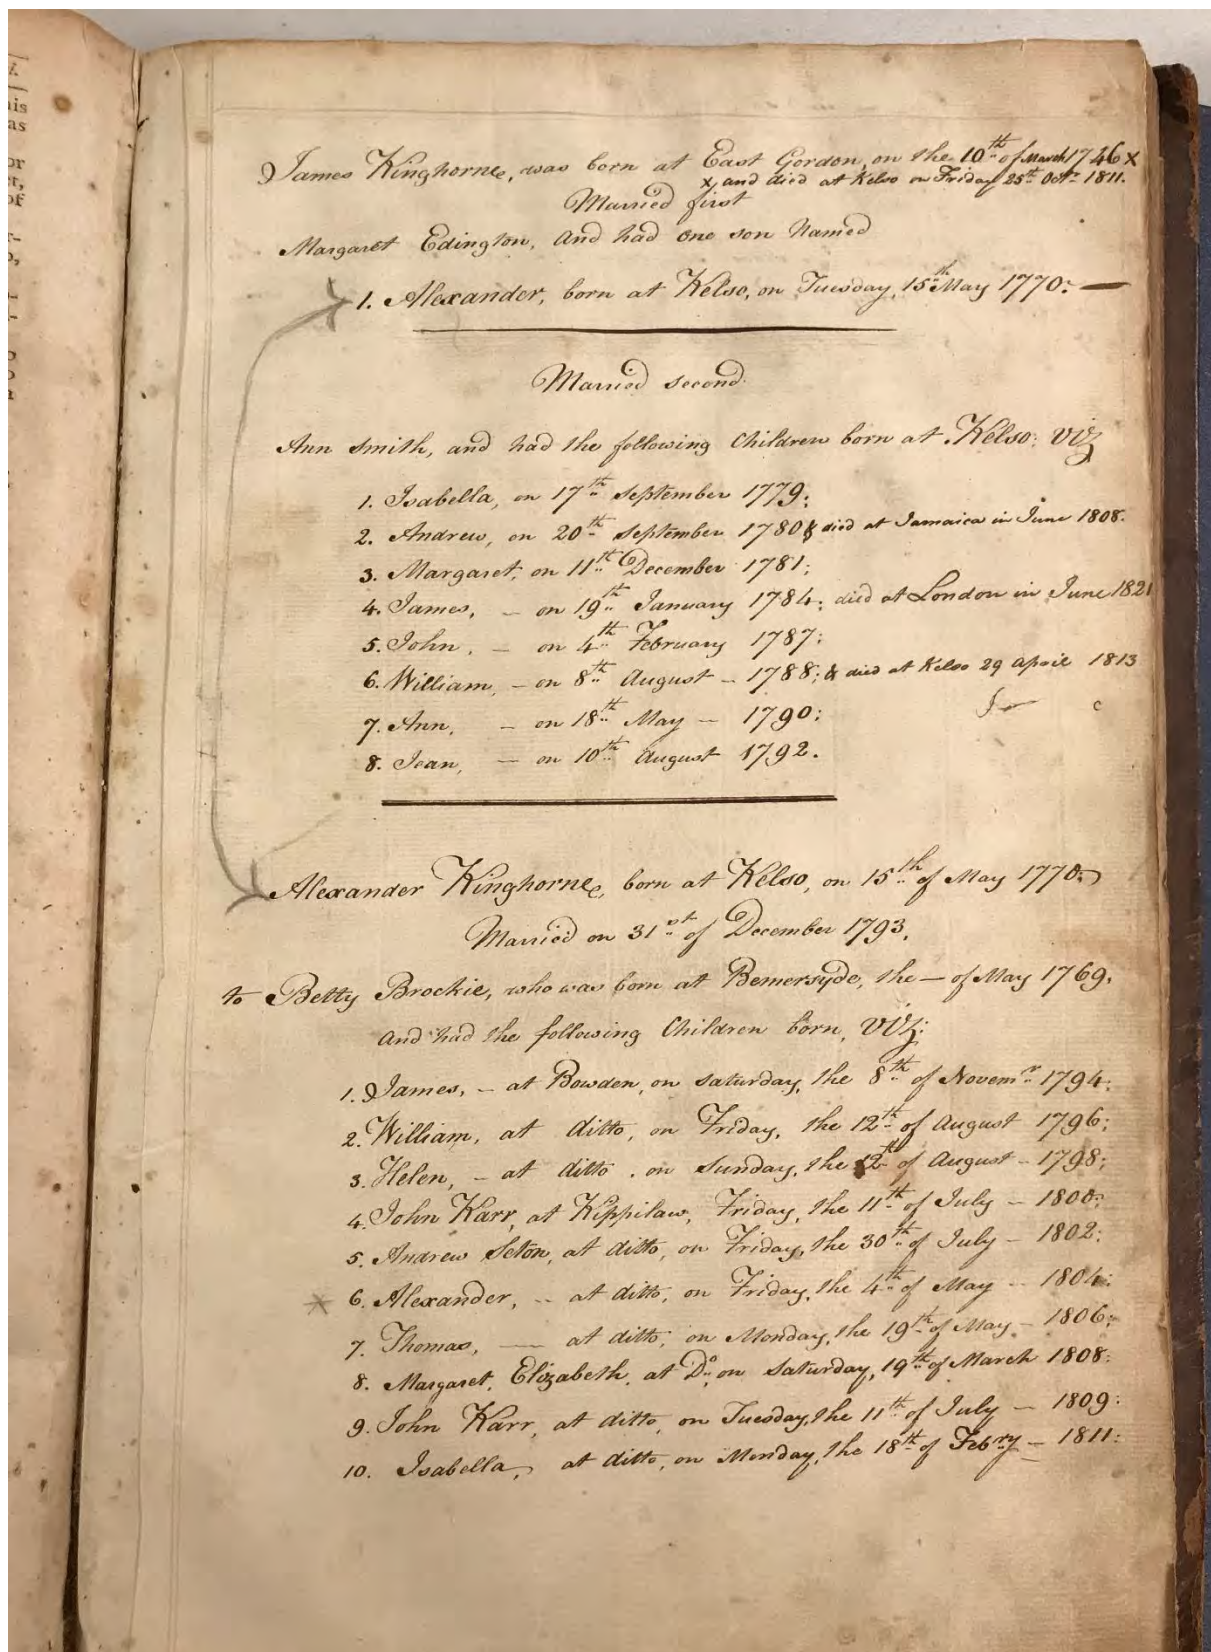 James Kinghorne, was born at East Gordon, on the 10th of March 1746 x
x and died at Kelso on Friday 25th Octr 1811.
Married first
Margaret Edington, and had one son Named
1. Alexander, born at Kelso, on Tuesday, 15th May 1770: —
Married second
Ann Smith, and had the following Children born at Kelso: Viz
1. Isabella, on 17th September 1779;
2. Andrew, on 20th September 1780 & died at Jamaica in June 1808.
3. Margaret, on 11th December 1781;
4. James, – on 19th January 1784; died at London in June 1821
5. John, – on 4th February 1787;
6. William, – on 8th August – 1788; & died at Kelso 29 April 1813
7. Ann, – on 18th May – 1790;
8. Jean, – on 10th August 1792.
Alexander Kinghorne, born at Kelso, on 15th of May 1770:
Married on 31st of December 1793,
to Betty Brockie, who was born at Bemersyde, the – of May 1769,
and had the following Children born, Viz:
1. James, – at Bowden, on Saturday, the 8th of Novemr 1794:
2. William, at ditto, on Friday, the 12th of August 1796;
3. Helen, – at ditto, on Sunday, the 12th of August – 1798;
4. John Karr, at Kippilaw, Friday, the 11th of July – 1800;
5. Andrew Seton, at ditto, on Friday, the 30th of July – 1802:
6. Alexander, – at ditto, on Friday, the 4th of May – 1804:
7. Thomas, — at ditto, on Monday, the 19th of May – 1806;
8. Margaret, Elizabeth, at Do, on Saturday, 19th of March 1808:
9. John Karr, at ditto, on Tuesday, the 11th of July – 1809:
10. Isabella, at ditto, on Monday, the 18th of Febry – 1811: